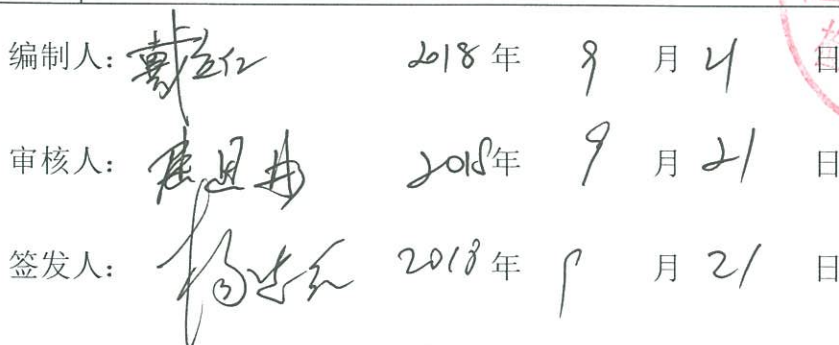 编制人：戴 2018年 9 月 21 日
审核人： 2018年 9 月 21 日
签发人：杨 2018年 9 月 21 日